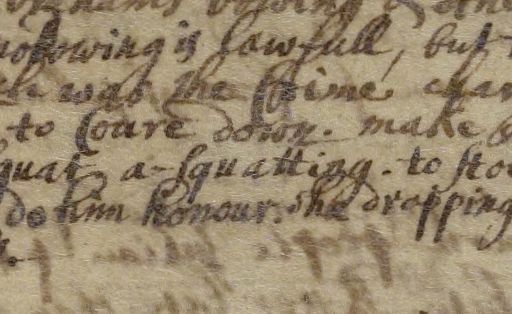 rowing is lawfull, but
was the Crime
to Coure down. make
squat a-squatting. to
do him honour. she dropping